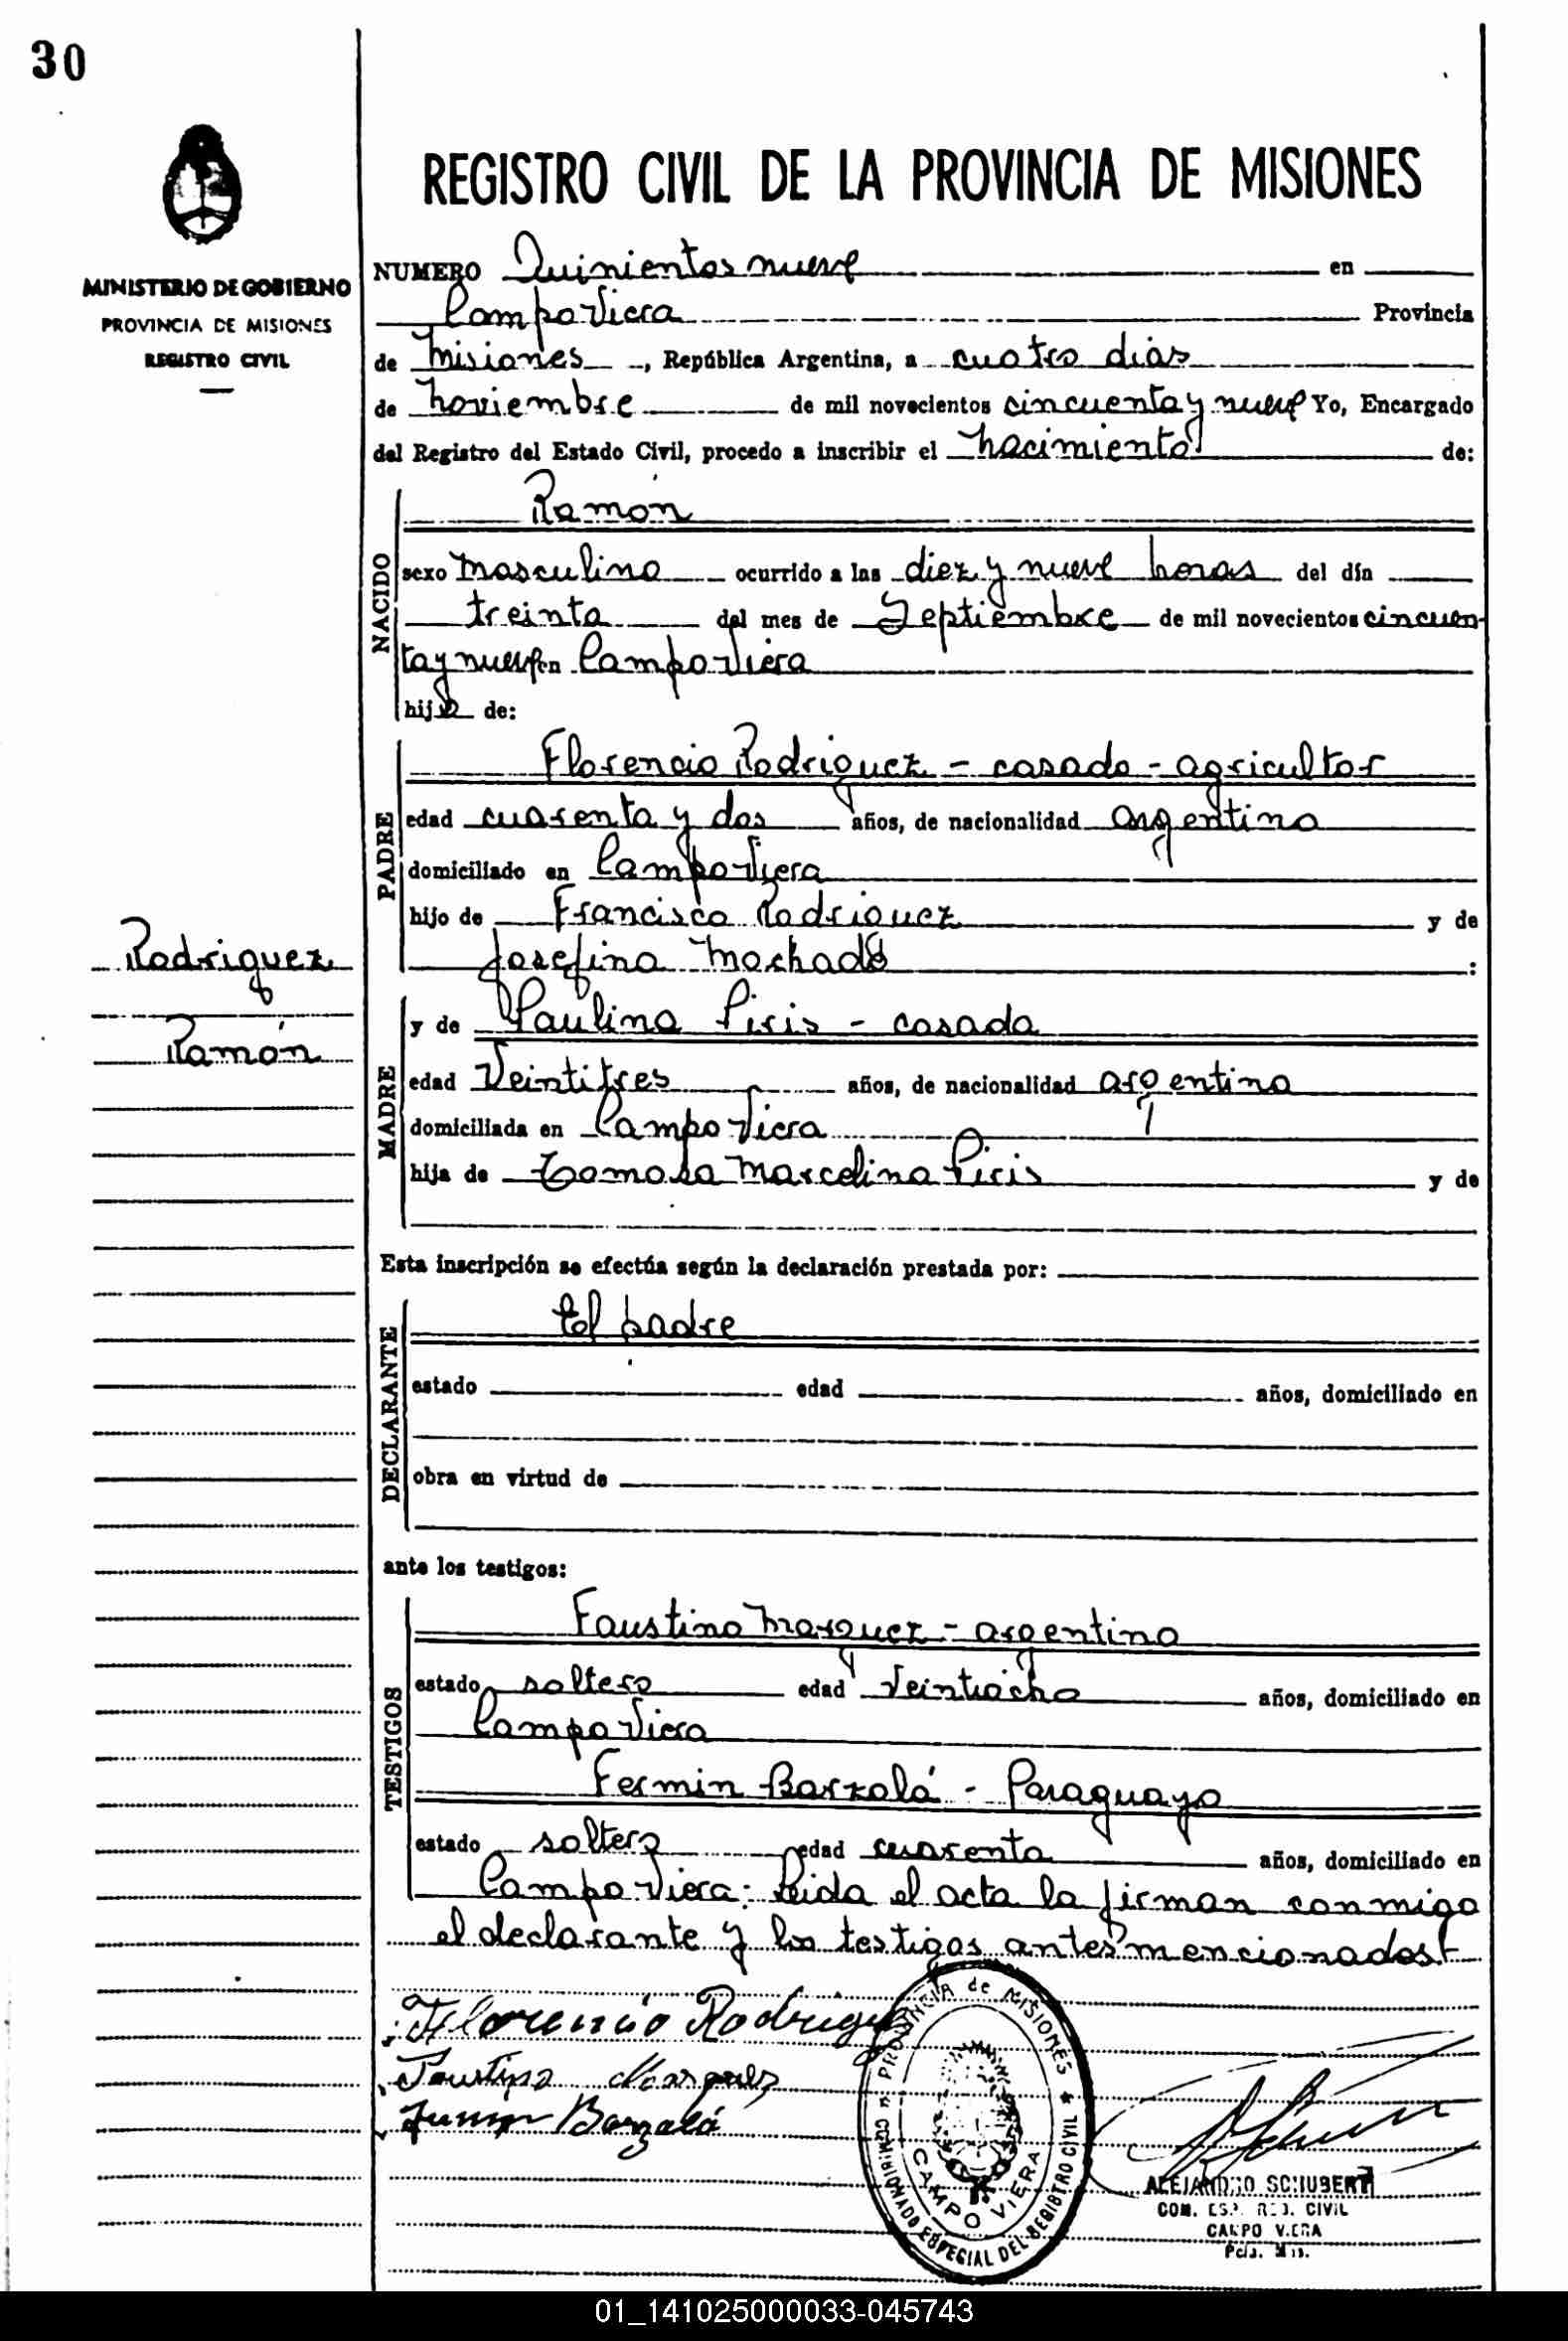 30
REGISTRO CIVIL DE LA PROVINCIA DE MISIONES
MINISTERIO DE GOBIERNO
PROVINCIA DE MISIONES
REGISTRO CIVIL
NUMERO Quinientos nueve en
Campo Viera Provincia
de Misiones, República Argentina, a cuatro dias
de Noviembre de mil novecientos cincuenta y nueve Yo, Encargado
del Registro del Estado Civil, procedo a inscribir el Nacimiento de:
NACIDO
Ramón
sexo Masculino ocurrido a las diez y nueve horas del día
treinta del mes de Septiembre de mil novecientos cincuen-
ta y nueve en Campo Viera
hijo de:
PADRE
Florencio Rodriguez - casado - agricultor
edad cuarenta y dos años, de nacionalidad argentina
domiciliado en Campo Viera
hijo de Francisco Rodriguez y de
Josefina Machado :
Rodriguez
Ramón
MADRE
y de Paulina Piris - casada
edad Veintitres años, de nacionalidad argentina
domiciliada en Campo Viera
hija de Tomasa Marcelina Piris y de
Esta inscripción se efectúa según la declaración prestada por:
DECLARANTE
El padre
estado edad años, domiciliado en
obra en virtud de
ante los testigos:
TESTIGOS
Faustino Marquez - argentino
estado soltero edad Veintiocho años, domiciliado en
Campo Viera
Fermin Barzolá - Paraguayo
estado soltero edad cuarenta años, domiciliado en
Campo Viera: Leida el acta la firman conmigo
el declarante y los testigos antes mencionados
Florencio Rodrigu
Faustino Marquez
Fermin Barzolá
PROVINCIA de MISIONES
COMISIONADO ESPECIAL DEL REGISTRO CIVIL
CAMPO VIERA
ALEJANDRO SCHUBERT
COM. ESP. REG. CIVIL
CAMPO VIERA
Pcia. Mis.
01_141025000033-045743